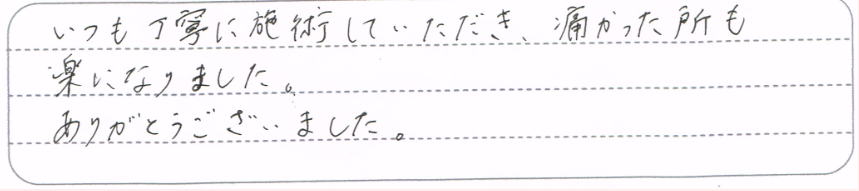 いつも丁寧に施術していただき、痛かった所も
楽になりました。
ありがとうございました。